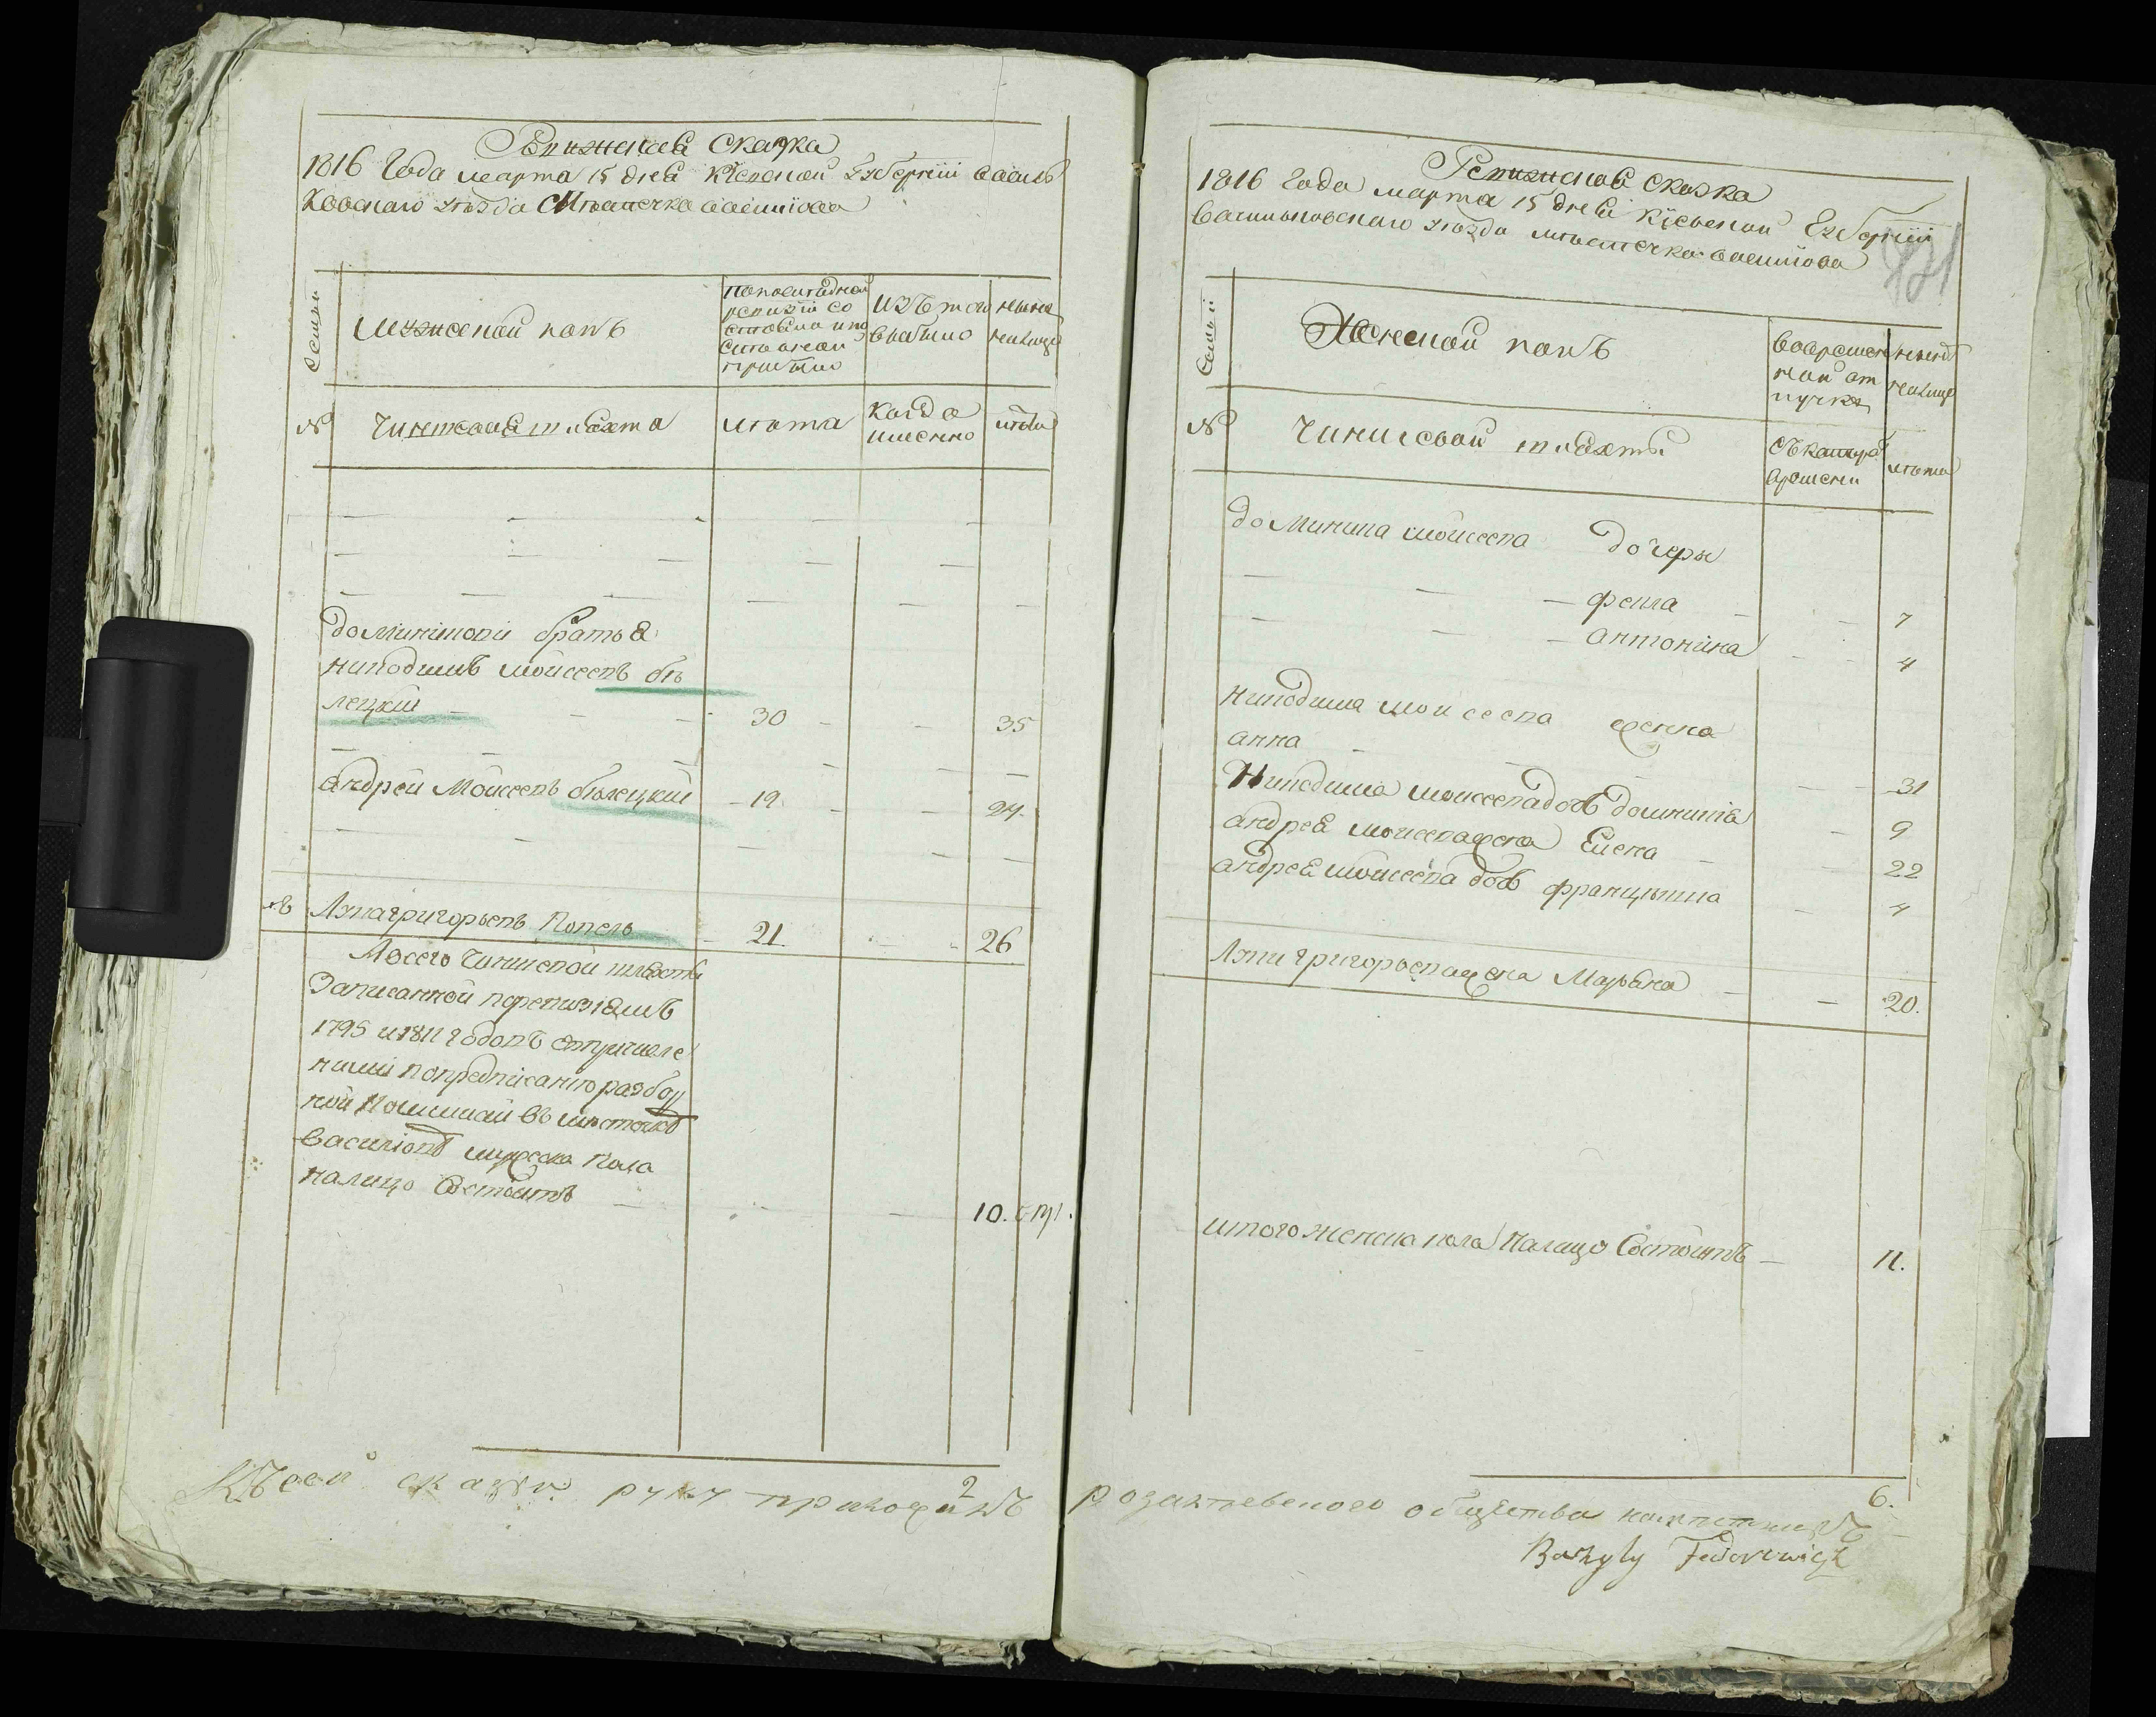 Ревижская Сказка
1816 Года марта 15 дня Кіевской Губерніи василь
ковскаго уѣзда Мѣстечка василіова
Семьи
мужеской полъ
По последней
ревизіи со
стояло и по
слѣ оной
прибыло
Изъ того
выбыло
ныне
налицо
№
Чиншевая шляхта
лѣта
когда
именно
лѣта
доминіковы братья
никодимъ мойсеевъ бѣ
лецкій 30 35
андрей Мойсеевъ бѣлецкій 19 24
Лука григорьевъ Попель 21 26
Авсего Чиншевой шляхты
Записанной поревизіямъ
1795 и 1811 годовъ
попредписанію разбор
ной Комиссіи въ мѣстечкѣ
василіовѣ мужеска пола
налицо Состоитъ 10.
2
Ревижская сказка
1816 Года марта 15 дня Кіевской Губерніи
васильковскаго уѣзда мѣстечка василіова
421
Семьи
Женской полъ
Вовремен
ной от
лучке
ныне
налицо
№
Чиншевой шляхты
Съ котораго
времени
лѣта
доминика мойсеева дочеры
фекла 7
антонина 4
никодима мойсеева жена
анна 31
Никодима мойсеева доч доминика 9
андрея мойсеева жена Елена 22
андрея мойсеева доч францышка 4
Луки григорьева жена Марьяна 20.
итого женска пола Налицо Состоитъ 11.
6.
Къ сей сказки руку приложилъ
общества
Bazyly Fedorowicz